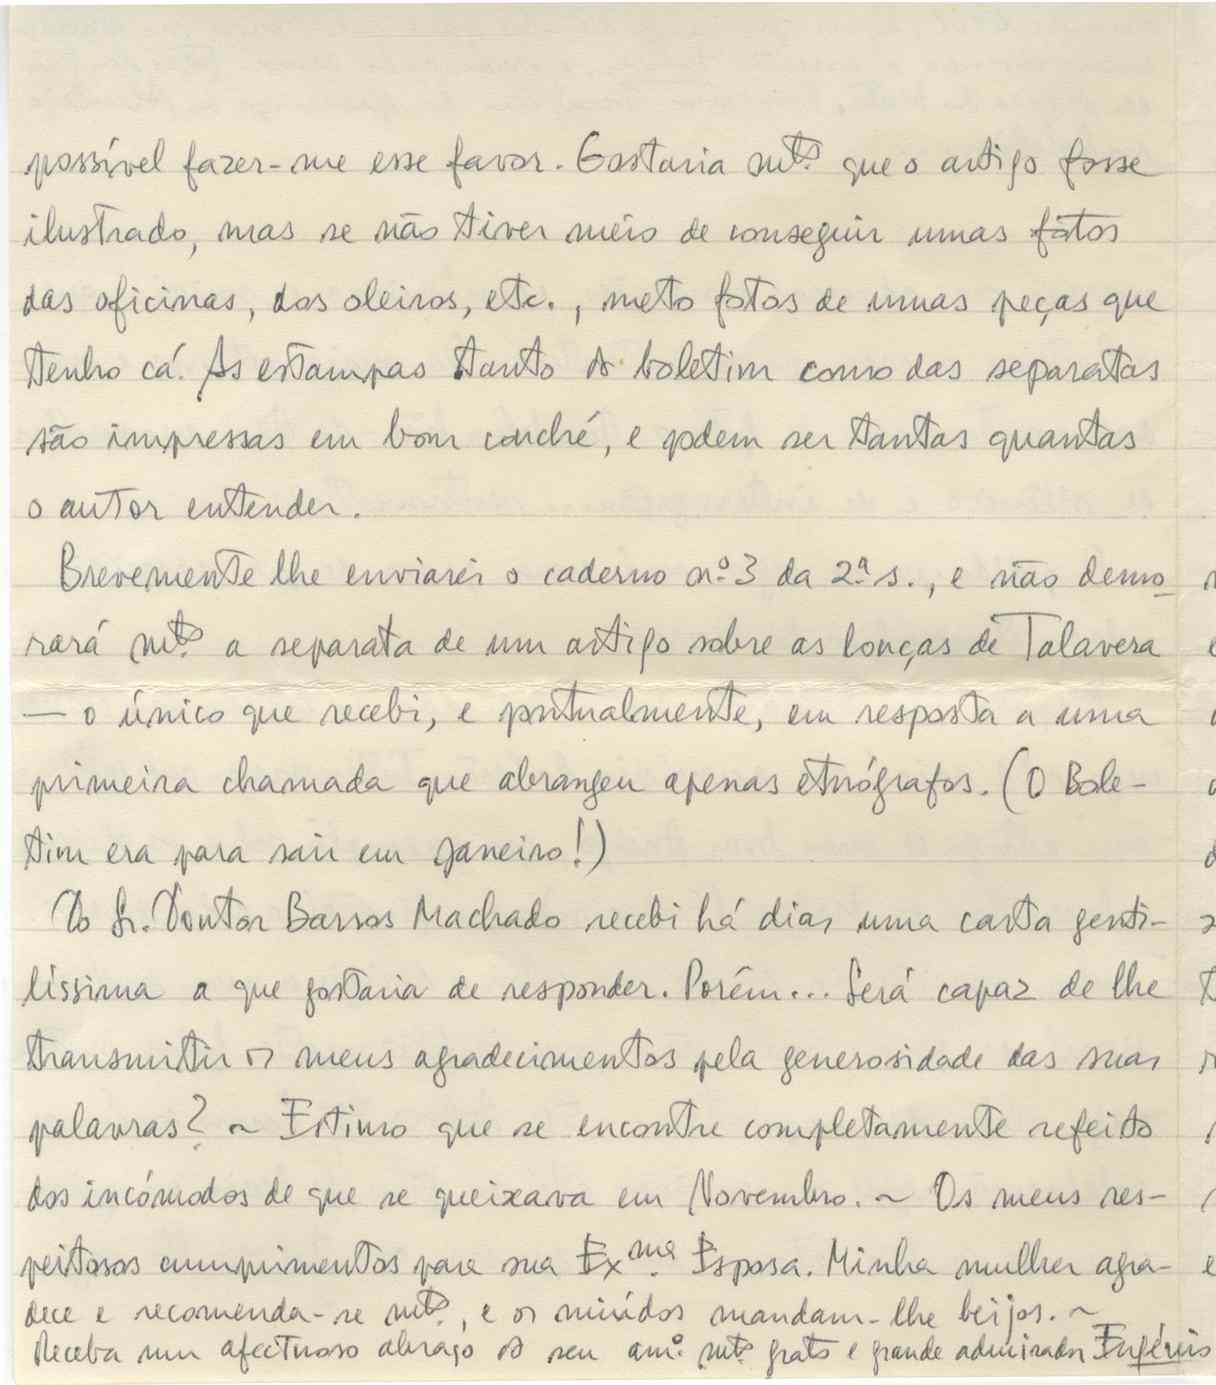 possível fazer-me esse favor. Gostaria mtº que o artigo fosse
ilustrado, mas se não tiver meio de conseguir umas fotos
das oficinas, dos oleiros, etc., meto fotos de umas peças que
tenho cá. As estampas tanto do boletim como das separatas
são impressas em bom couché, e podem ser tantas quantas
o autor entender.
Brevemente lhe enviarei o caderno nº 3 da 2ª s., e não demo-
rará mtº a separata de um artigo sobre as louças de Talavera
— o único que recebi, e pontualmente, em resposta a uma
primeira chamada que abrangeu apenas etnógrafos. (O Bole-
tim era para sair em Janeiro!)
Do Sr. Doutor Barros Machado recebi há dias uma carta genti-
líssima a que gostaria de responder. Porém... Será capaz de lhe
transmitir os meus agradecimentos pela generosidade das suas
palavras? ~ Estimo que se encontre completamente refeito
dos incómodos de que se queixava em Novembro. ~ Os meus res-
peitosos cumprimentos para sua Exma. Esposa. Minha mulher agra-
dece e recomenda-se mtº, e os miúdos mandam-lhe beijos. ~
Receba um afectuoso abraço do seu amº mtº grato e grande admirador Eugénio